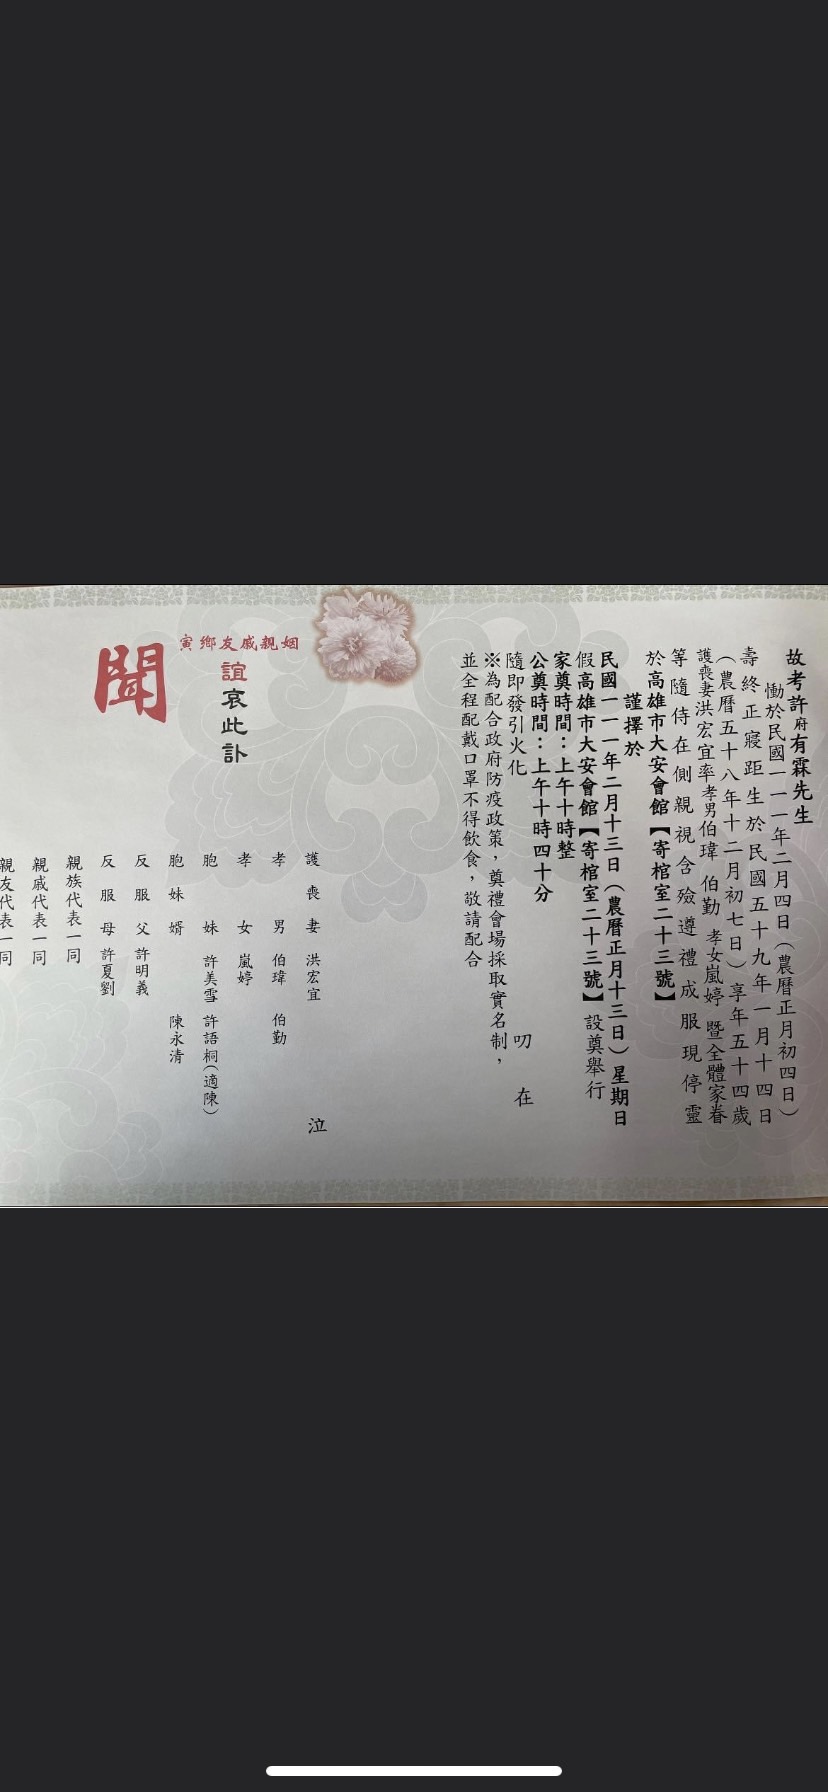 故考許府有霖先生
慟於民國一一一年二月四日（農曆正月初四日）
壽終正寢距生於民國五十九年一月十四日
（農曆五十八年十二月初七日）享年五十四歲
護喪妻洪宏宜率孝男伯瑋 伯勤 孝女嵐婷 暨全體家眷
等隨侍在側親視含殮遵禮成服現停靈
於高雄市大安會館【寄棺室二十三號】
謹擇於
民國一一一年二月十三日（農曆正月十三日）星期日
假高雄市大安會館【寄棺室二十三號】設奠舉行
家奠時間：上午十時整
公奠時間：上午十時四十分
隨即發引火化 叨在
※為配合政府防疫政策，奠禮會場採取實名制，
並全程配戴口罩不得飲食，敬請配合
姻親戚友鄉寅
誼哀此訃
聞
護喪妻 洪宏宜 泣
孝男 伯瑋 伯勤
孝女 嵐婷
胞妹 許美雪 許語桐（適陳）
胞妹婿 陳永清
反服父 許明義
反服母 許夏劉
親族代表一同
親戚代表一同
親友代表一同